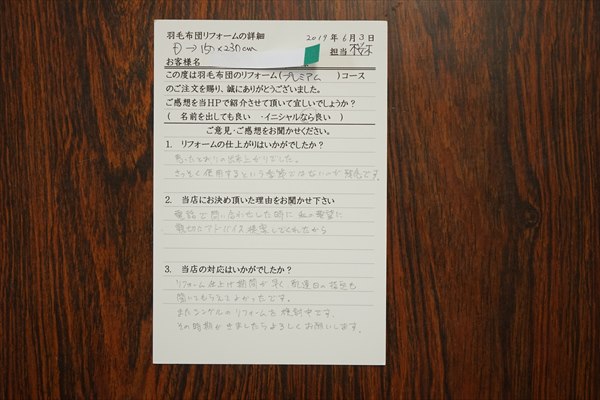 羽毛布団リフォームの詳細
2019年6月3日
Ⓓ→150×230cm
担当 桜子
お客様名
この度は羽毛布団のリフォーム(プレミアム)コース
のご注文を賜り、誠にありがとうございました。
ご感想を当HPで紹介させて頂いて宜しいでしょうか?
( 名前を出しても良い ・イニシャルなら良い )
ご意見・ご感想をお聞かせください。
1. リフォームの仕上がりはいかがでしたか?
思ったとおりの出来上がりでした。
さっそく使用するという季節ではないのが残念です。
2. 当店にお決め頂いた理由をお聞かせ下さい
電話で問い合わせした時に私の要望に
親切にアドバイス検案してくれたから
3. 当店の対応はいかがでしたか?
リフォーム仕上げ期間が早く配達日の指定も
聞いてもらえてよかったです。
またシングルのリフォームを検討中です。
その時期がきましたらよろしくお願いします。